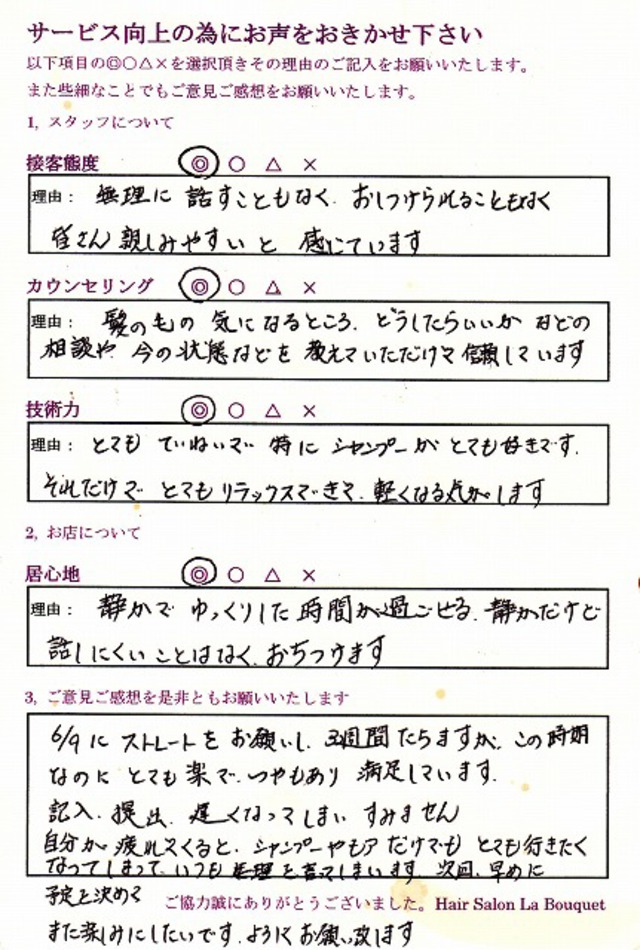 サービス向上の為にお声をおきかせ下さい
以下項目の◎○△×を選択頂きその理由のご記入をお願いいたします。
また些細なことでもご意見ご感想をお願いいたします。
1, スタッフについて
接客態度 ◎ ○ △ ×
理由： 無理に 話すこともなく、おしつけられることもなく
皆さん 親しみやすい と 感じています
カウンセリング ◎ ○ △ ×
理由： 髪のもの 気に なるところ、どうしたらいいか などの
相談や 今の状態などを 教えていただけて 信頼しています
技術力 ◎ ○ △ ×
理由： とても ていねいで 特に シャンプーが とても好きです。
それだけで とてもリラックスできて、軽くなる気がします
2, お店について
居心地 ◎ ○ △ ×
理由： 静かで ゆっくりした 時間が過ごせる。静かだけど
話しにくい ことはなく、おちつけます
3, ご意見ご感想を是非ともお願いいたします
6/9 に ストレートを お願いし、3週間 たちますが、この時期
なのに とても 楽で、つやもあり 満足しています。
記入、提出、遅くなってしまい すみません
自分が 疲れてくると、シャンプーやモア だけでも とても行きたく
なってしまって、いつも 無理を言ってしまいます。次回、早めに
予定を決めて
ご協力誠にありがとうございました。Hair Salon La Bouquet
また楽しみにしたいです。よろしく お願い致します